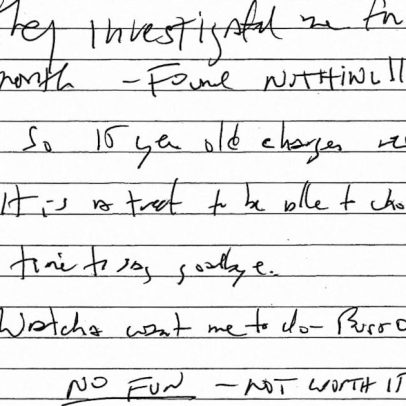 They investigated me for
month - Found NOTHING!!
So 15 year old charges
It is a treat to be able to cho
time to say goodbye.
want me to do -
NO FUN - NOT WORTH IT